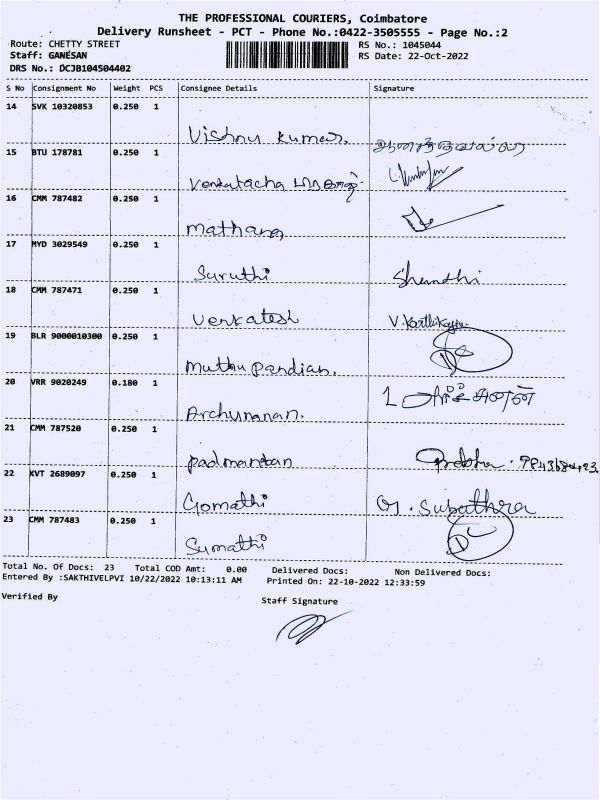 THE PROFESSIONAL COURIERS, Coimbatore
Delivery Runsheet - PCT - Phone No.:0422-3505555 - Page No.:2
Route: CHETTY STREET
RS No.: 1045044
Staff: GANESAN
RS Date: 22-Oct-2022
DRS No.: DCJB104504402
S No Consignment No Weight PCS Consignee Details Signature
14 SVK 10320853 0.250 1
Vishnu Kumar.
15 BTU 178781 0.250 1
Venkatacha
16 CMM 787482 0.250 1
17 MYD 3029549 0.250 1
Suruthi Shandhi
18 CMM 787471 0.250 1
Venkatesh V.Karthikayu
19 BLR 9000010300 0.250 1
Muthu pandian.
20 VRR 9020249 0.180 1
Archunanan.
21 CMM 787520 0.250 1
22 KVT 2689097 0.250 1
Gomathi G. Subathra
23 CMM 787483 0.250 1
Sumathi
Total No. Of Docs: 23 Total COD Amt: 0.00 Delivered Docs: Non Delivered Docs:
Entered By :SAKTHIVELPVI 10/22/2022 10:13:11 AM Printed On: 22-10-2022 12:33:59
Verified By
Staff Signature